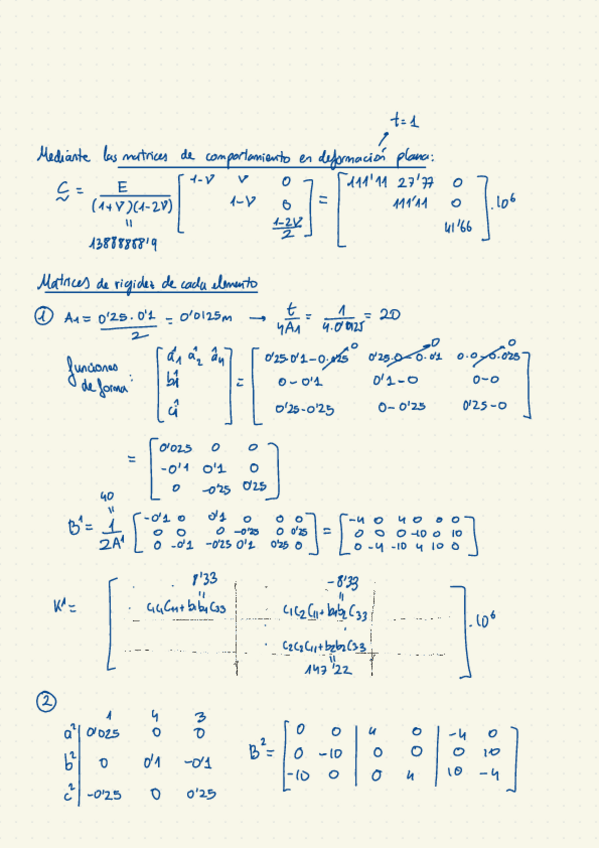 t=1
Mediante las matrices de comportamiento en deformación plana:
C = E / (1+V)(1-2V) [ 1-V V 0 ; 1-V 0 ; 1-2V/2 ] = [ 111'11 27'77 0 ; 111'11 0 ; 41'66 ] .10⁶
=
138888888'9
Matrices de rigidez de cada elemento
① A1 = 0'25.0'1 / 2 = 0'0125m → t/4A1 = 1/4.0'0125 = 20
funciones de forma: [ a¹1 â2 â4 ; b¹1 ; c¹1 ] = [ 0'25.0'1-0.0'25 0 0'25.0-0.0'1 0 0.0-0.0'25 0 ; 0-0'1 0'1-0 0-0 ; 0'25-0'25 0-0'25 0'25-0 ]
= [ 0'025 0 0 ; -0'1 0'1 0 ; 0 -0'25 0'25 ]
40
=
B¹ = 1/2A¹ [ -0'1 0 0'1 0 0 0 ; 0 0 0 -0'25 0 0'25 ; 0 -0'1 -0'25 0'1 0'25 0 ] = [ -4 0 4 0 0 0 ; 0 0 0 -10 0 10 ; 0 -4 -10 4 10 0 ]
8'33 -8'33
= =
K¹ = [ C1C2C11+b1b2C33 ; C2C2C11+b2b2C33 ] .10⁶
=
147'22
②
1 4 3
a² 0'025 0 0
b² 0 0'1 -0'1
c² -0'25 0 0'25
B² = [ 0 0 | 4 0 | -4 0 ; 0 -10 | 0 0 | 0 10 ; -10 0 | 0 4 | 10 -4 ]